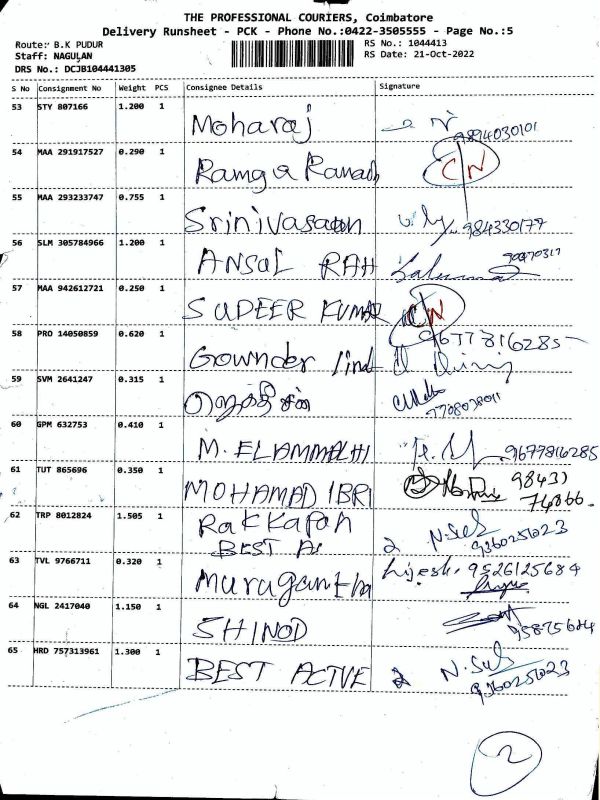 THE PROFESSIONAL COURIERS, Coimbatore
Delivery Runsheet - PCK - Phone No.:0422-3505555 - Page No.:5
Route: B.K PUDUR
RS No.: 1044413
Staff: NAGULAN
RS Date: 21-Oct-2022
DRS No.: DCJB104441305
S No Consignment No Weight PCS Consignee Details Signature
53 STY 807166 1.200 1 Moharaj 9894030101
54 MAA 291917527 0.290 1 Ramga Ramach CN
55 MAA 293233747 0.755 1 Srinivasaan 984330177
56 SLM 305784966 1.200 1 ANSAL RAH
57 MAA 942612721 0.250 1 SUDEER KUMAR CN
58 PRO 14050859 0.620 1 Gownder lind 9677816285
59 SVM 2641247 0.315 1 7708038011
60 GPM 632753 0.410 1 M. ELAMMALHI 9677816285
61 TUT 865696 0.350 1 MOHAMAD IBRI 98431
74866.
62 TRP 8012824 1.505 1 Rakkapan N. Sel
BEST Ac 2 936025023
63 TVL 9766711 0.320 1 Murugantha lijesh. 9526125684
64 NGL 2417040 1.150 1 SHINOD 95875684
65 HRD 757313961 1.300 1 BEST ACTVE 2 N. Sel
936025023
2